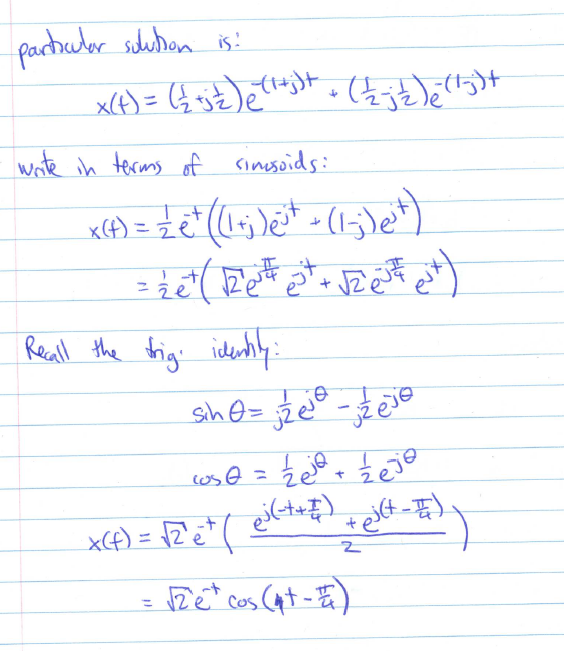 particular solution is:
x(t) = (1/2 + j 1/2) e^{-(1+j)t} + (1/2 - j 1/2) e^{-(1-j)t}
write in terms of sinusoids:
x(t) = 1/2 e^{-t} ((1+j) e^{-jt} + (1-j) e^{jt})
= 1/2 e^{-t} ( √2 e^{jπ/4} e^{-jt} + √2 e^{-jπ/4} e^{jt} )
Recall the trig. identity:
sin θ = 1/j2 e^{jθ} - 1/j2 e^{-jθ}
cos θ = 1/2 e^{jθ} + 1/2 e^{-jθ}
x(t) = √2 e^{-t} ( (e^{j(-t+π/4)} + e^{j(t-π/4)}) / 2 )
= √2 e^{-t} cos(t - π/4)